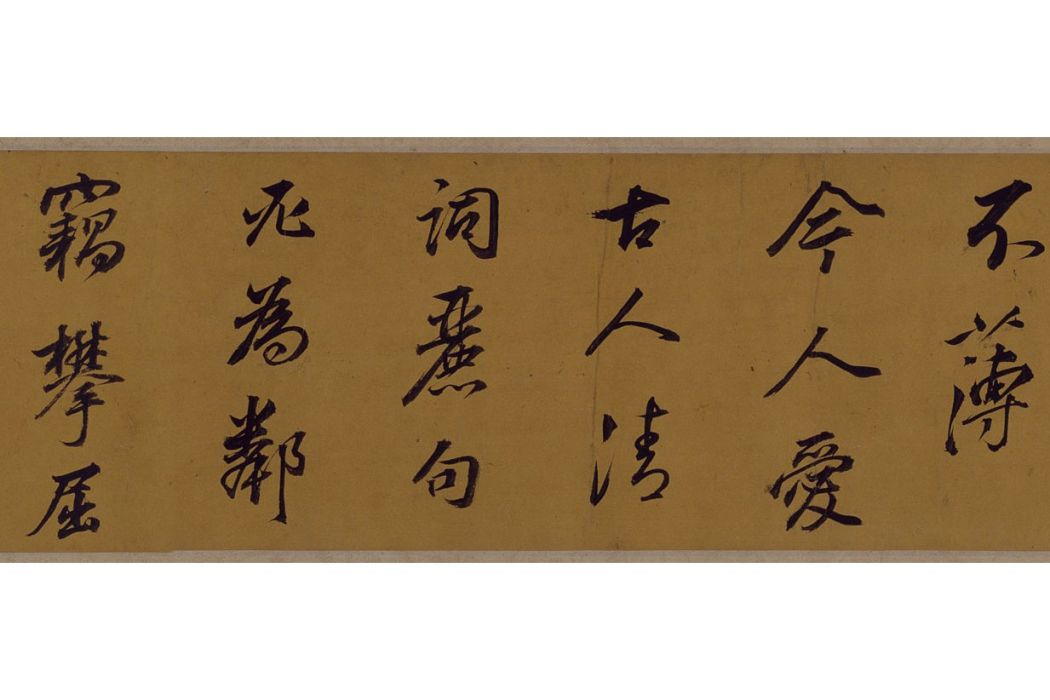 不薄
今人愛
古人清
詞麗句
必為鄰
竊攀屈